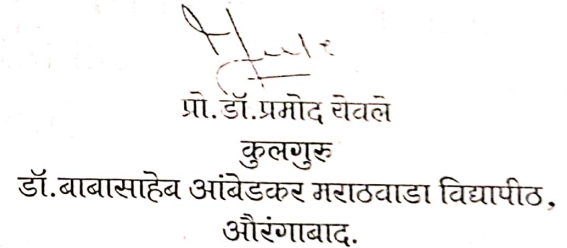 प्रो.डॉ.प्रमोद येवले
कुलगुरु
डॉ.बाबासाहेब आंबेडकर मराठवाडा विद्यापीठ,
औरंगाबाद.